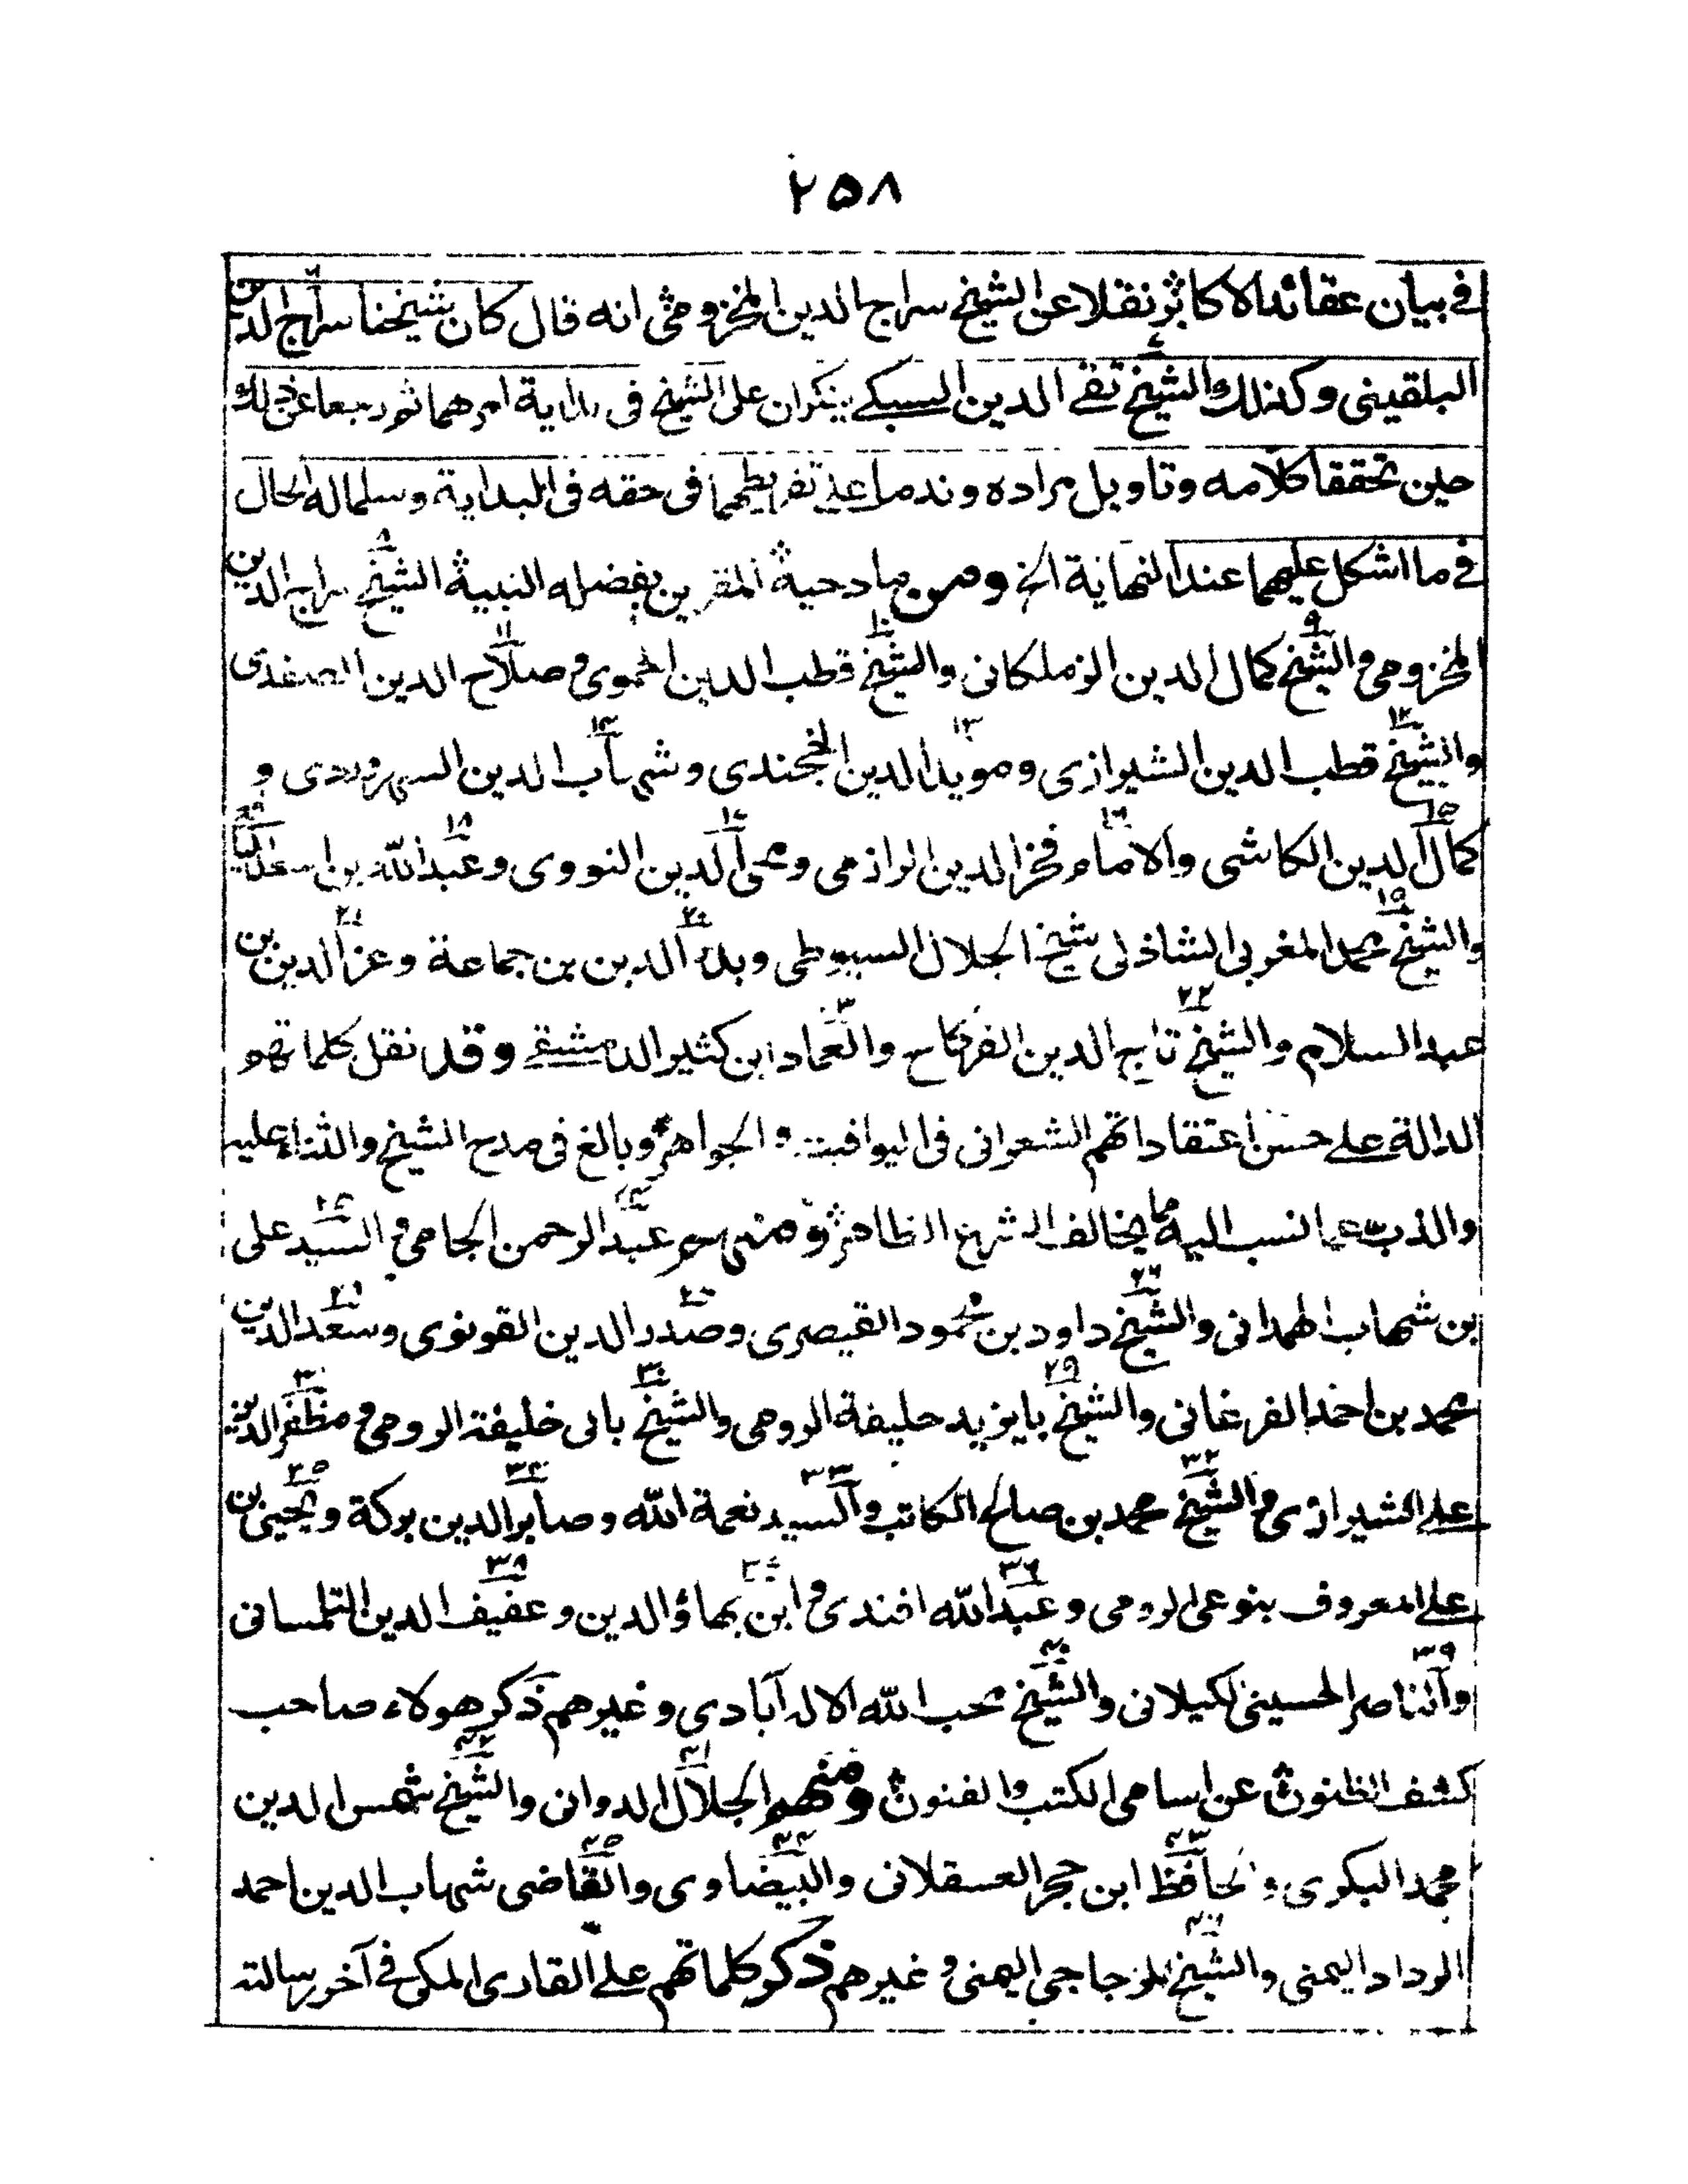 ٢٥٨
في بيان عقائد الاكابر نقلا عن الشيخ سراج الدين المخزومي انه قال كان شيخنا سراج الدين
البلقيني وكذلك الشيخ تقي الدين السبكي ينكران على الشيخ في بداية امرهما ثم رجعا عن ذلك
حين تحققا كلامه وتاويل مراده وندما على تفريطهما في حقه في البداية وسلما له الحال
في ما اشكل عليهما عند النهاية الخ ومن مادحية المقرين بفضله النبية الشيخ سراج الدين
المخزومي والشيخ كمال الدين الزملكاني والشيخ قطب الدين الحموي وصلاح الدين الصفدي
والشيخ قطب الدين الشيرازي ومويد الدين الخجندي وشهاب الدين السهروردي و
كمال الدين الكاشي والامام فخر الدين الرازي ومحي الدين النووي وعبد الله بن اسعد
والشيخ محمد المغربي الشاذلي شيخ الجلال السيوطي وبدر الدين بن جماعة وعز الدين بن
عبد السلام والشيخ تاج الدين الفركاح والعماد ابن كثير الدمشقي وقد نقل كلماتهم
الدالة على حسن اعتقاداتهم الشعراني في اليواقيت والجواهر وبالغ في مدح الشيخ والثناء عليه
والذب عما نسب اليه مما يخالف الشرع الظاهر ومنهم عبد الرحمن الجامي والسيد على
بن شهاب الهمداني والشيخ داود بن محمود القيصري وصدر الدين القونوي وسعد الدين
محمد بن احمد الفرغاني والشيخ بايزيد خليفة الرومي والشيخ بالي خليفة الرومي ومظفر الدين
على الشيرازي والشيخ محمد بن صالح الكاتب والسيد نعمة الله وصابر الدين بركة ويحيى بن
على المعروف بنوعي الرومي وعبد الله افندي وابن بهاؤ الدين وعفيف الدين التلمساني
والناصر الحسيني الكيلاني والشيخ محب الله الاله آبادي وغيرهم ذكر هولاء صاحب
كشف الظنون عن اسامي الكتب والفنون ومنهم الجلال الدواني والشيخ شمس الدين
محمد البكري والحافظ ابن حجر العسقلاني والبيضاوي والقاضي شهاب الدين احمد
الرداد اليمني والشيخ المزجاجي اليمني وغيرهم ذكر كلماتهم على القاري المكي في آخر رسالته